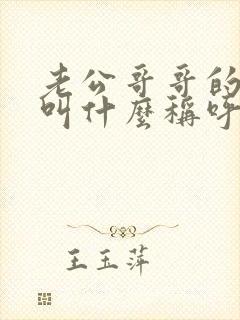 老公哥哥的
叫什麼稱呼
王玉萍